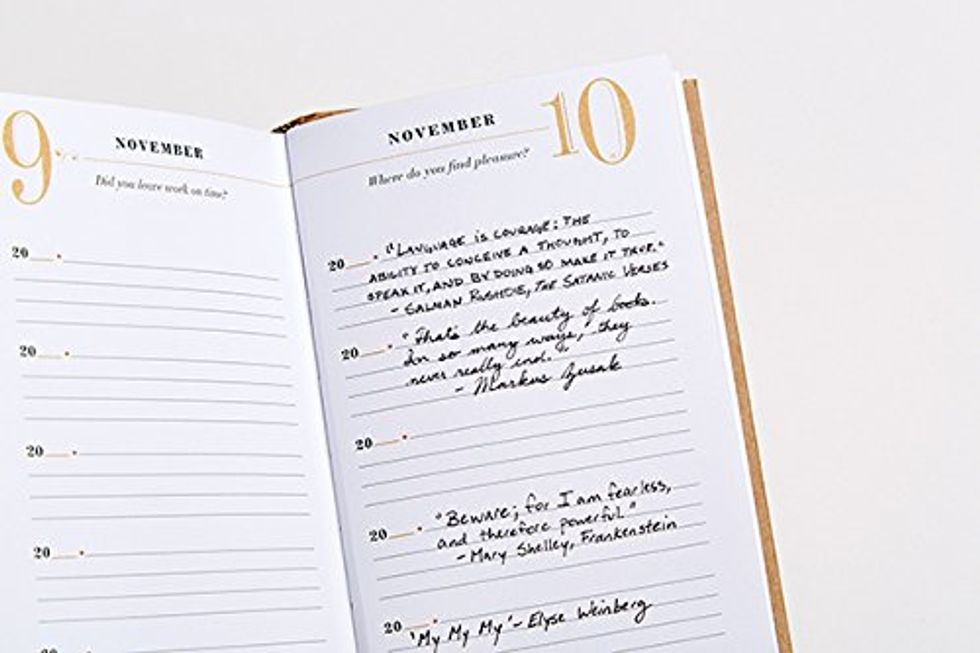 9
NOVEMBER
Did you leave work on time?
20
20
20
20
20
NOVEMBER
10
Where do you find pleasure?
20 "LANGUAGE IS COURAGE: THE
ABILITY TO CONCEIVE A THOUGHT, TO
SPEAK IT, AND BY DOING SO MAKE IT TRUE."
- SALMAN RUSHDIE, THE SATANIC VERSES
20 "That's the beauty of books.
In so many ways, they
never really end."
- Markus Zusak
20
20 "Beware; for I am fearless,
and therefore powerful."
- Mary Shelley, Frankenstein
20 'My My My' - Elyse Weinberg